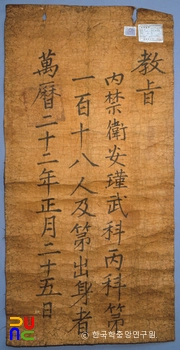 教旨
內禁衛安瑾武科丙科第
一百十八人及第出身者
萬曆二十二年正月二十五日
한국학중앙연구원